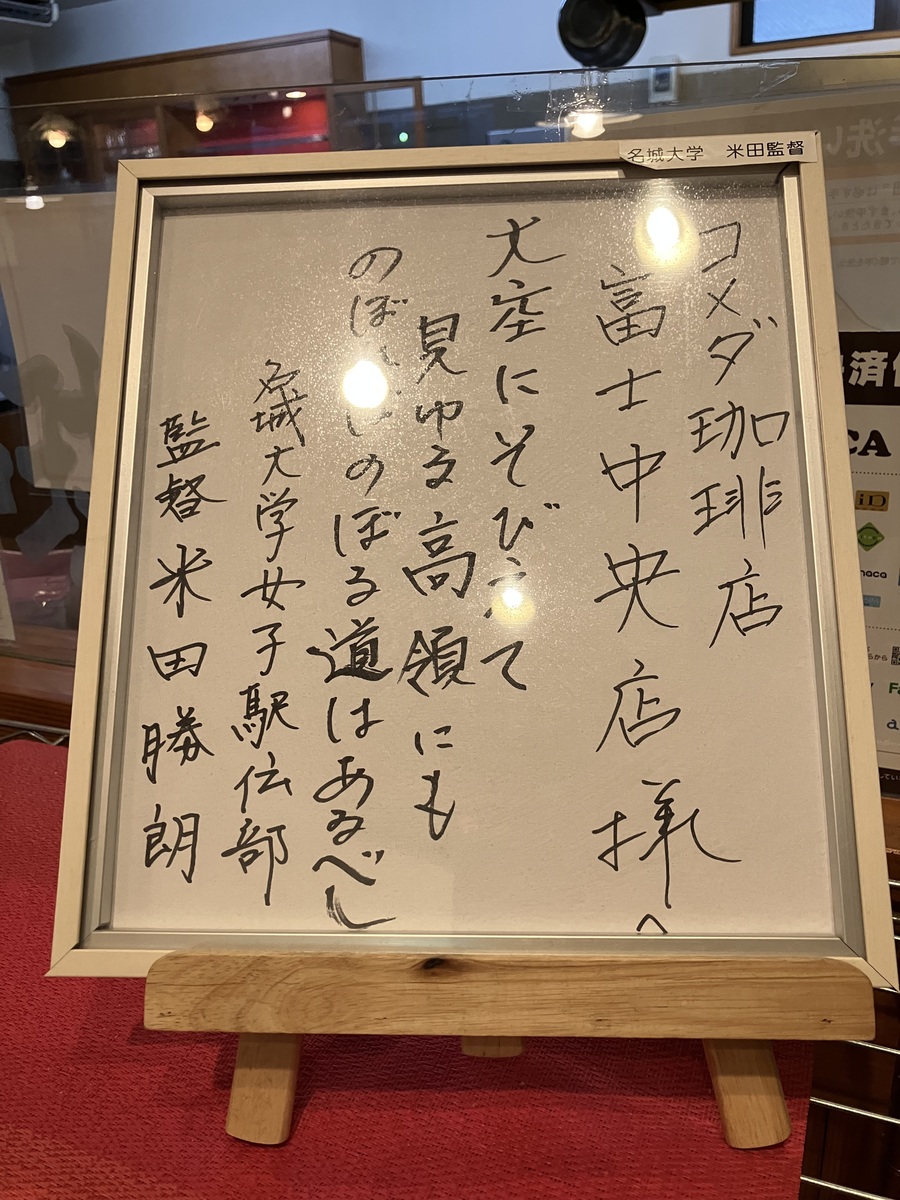 名城大学　米田監督
コメダ珈琲店
富士中央店様へ
大空にそびえて
見ゆる高領にも
のぼればのぼる道はあるべし
名城大学女子駅伝部
監督米田勝朗
iD